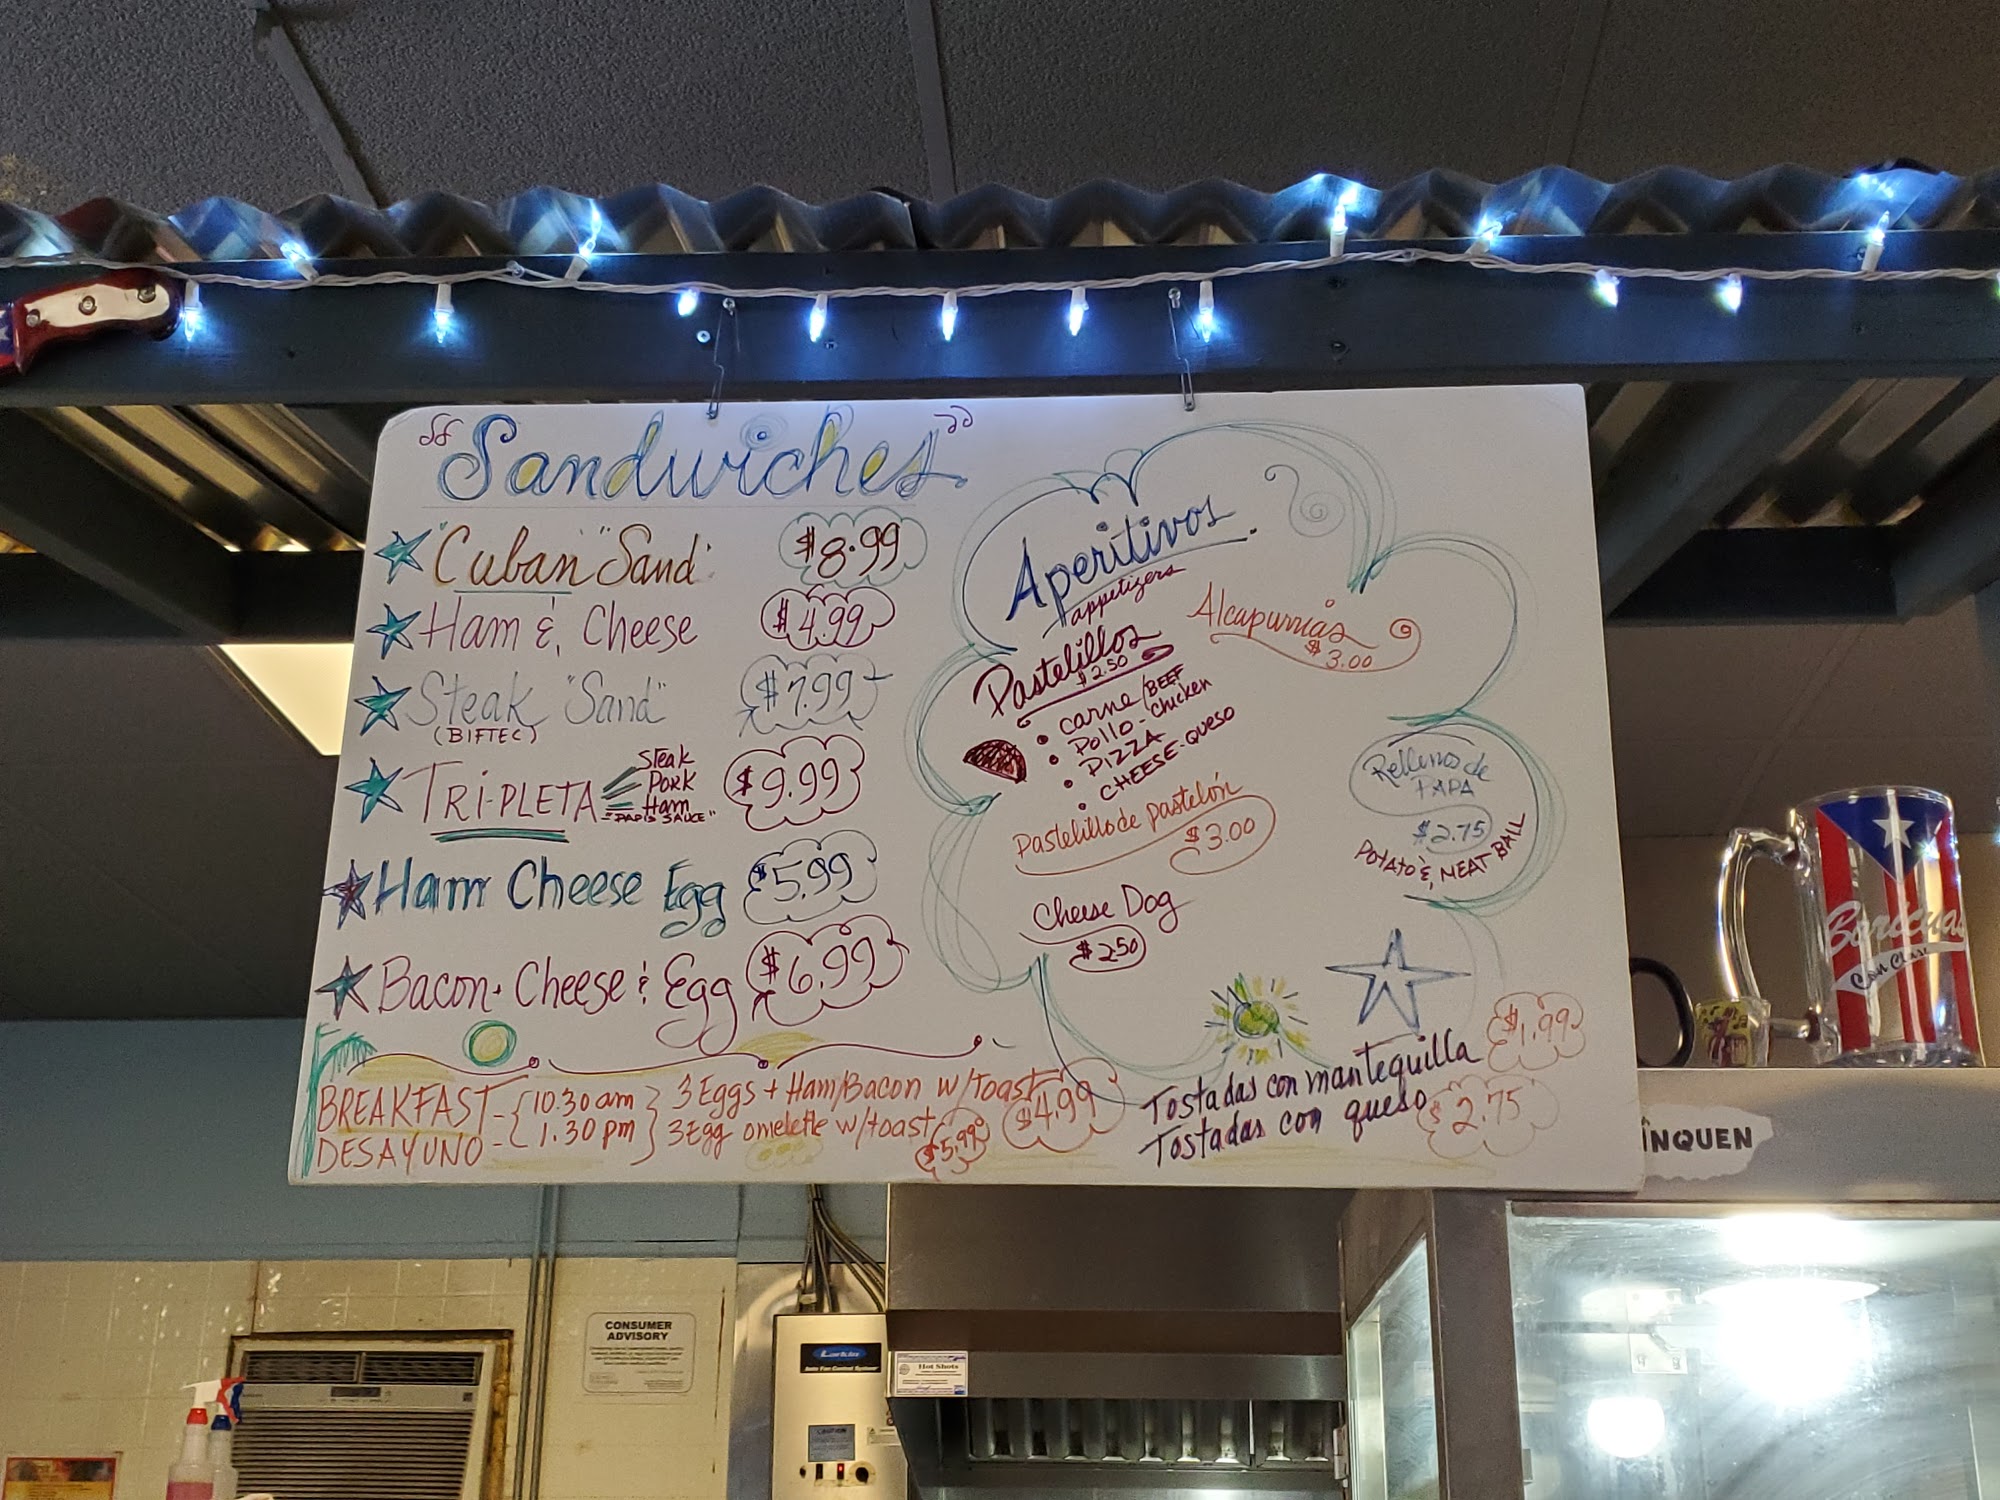 "Sandwiches"
"Cuban" Sand. $8.99
Ham & Cheese $4.99
Steak "Sand" $7.99
(BIFTEC)
TRI-PLETA $9.99
Steak
Pork
Ham
"PAPIS SAUCE"
Ham Cheese Egg $5.99
Bacon Cheese & Egg $6.99
BREAKFAST - 10:30 am
DESAYUNO - 1:30 pm
3 Eggs + Ham/Bacon w/toast $4.99
3 Egg omelette w/toast $5.99
Aperitivos
appetizers
Pastelillos
$2.50
• carne/BEEF
• Pollo-chicken
• PIZZA
• CHEESE-queso
Alcapurrias
$3.00
Pastelillo de pastelón
$3.00
Cheese Dog
$2.50
Rellenos de
PAPA
$2.75
POTATO & MEAT BALL
Tostadas con mantequilla $1.99
Tostadas con queso $2.75
Boricuas
Con Clase
ÎNQUEN
CONSUMER
ADVISORY
Larkin
Auto Fan Control System
CAUTION
Hot Shots